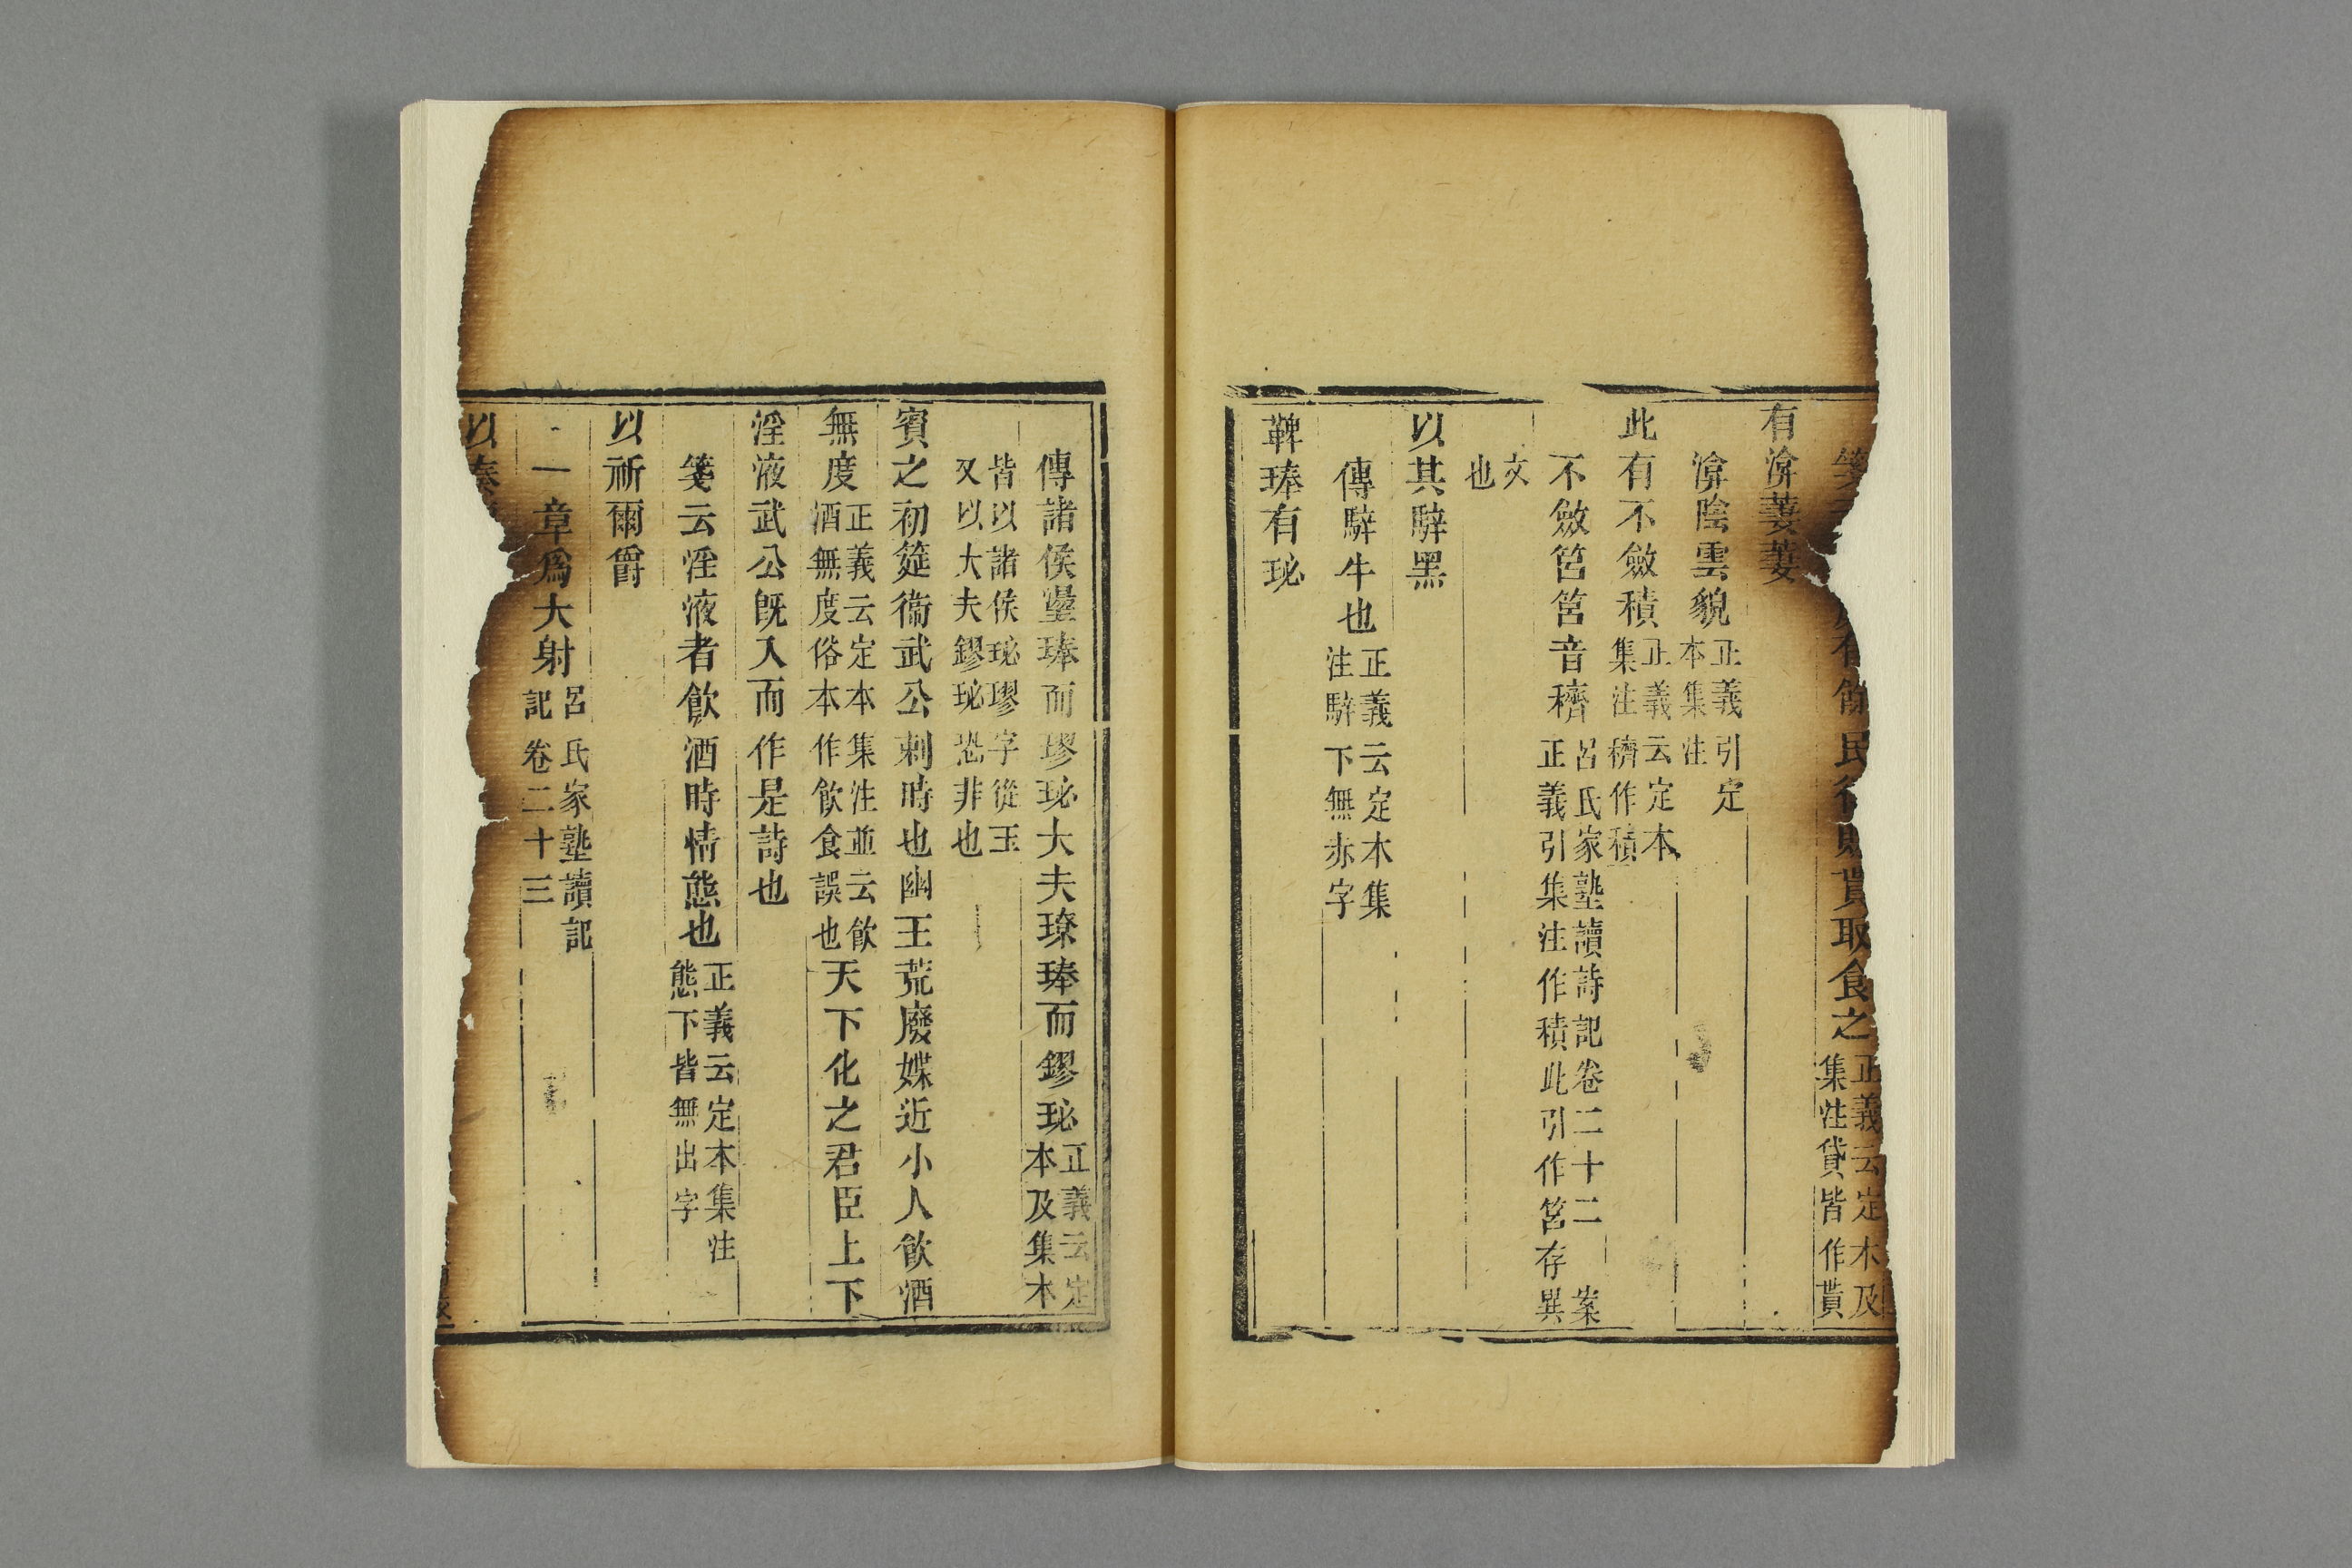 餘民得貰取食之正義云定本及集注貸皆作貰
有渰萋萋
渰陰雲貌正義引定本集注
此有不斂積正義云定本集注穧作積
不斂筥筥音穧呂氏家塾讀詩記卷二十二案正義引集注作積此引作筥存異
文也
以其騂黑
傳騂牛也正義云定本集注騂下無赤字
鞞琫有珌
傳諸侯璗琫而璆珌大夫璙琫而鏐珌正義云定本及集本
皆以諸侯珌璆字從玉又以大夫鏐珌恐非也
賓之初筵衞武公刺時也幽王荒廢媟近小人飲酒
無度正義云定本集注並云飲酒無度俗本作飲食誤也天下化之君臣上下
淫液武公既入而作是詩也
箋云淫液者飲酒時情態也正義云定本集注態下皆無出字
以祈爾爵
一章爲大射呂氏家塾讀記記卷二十三
以奏